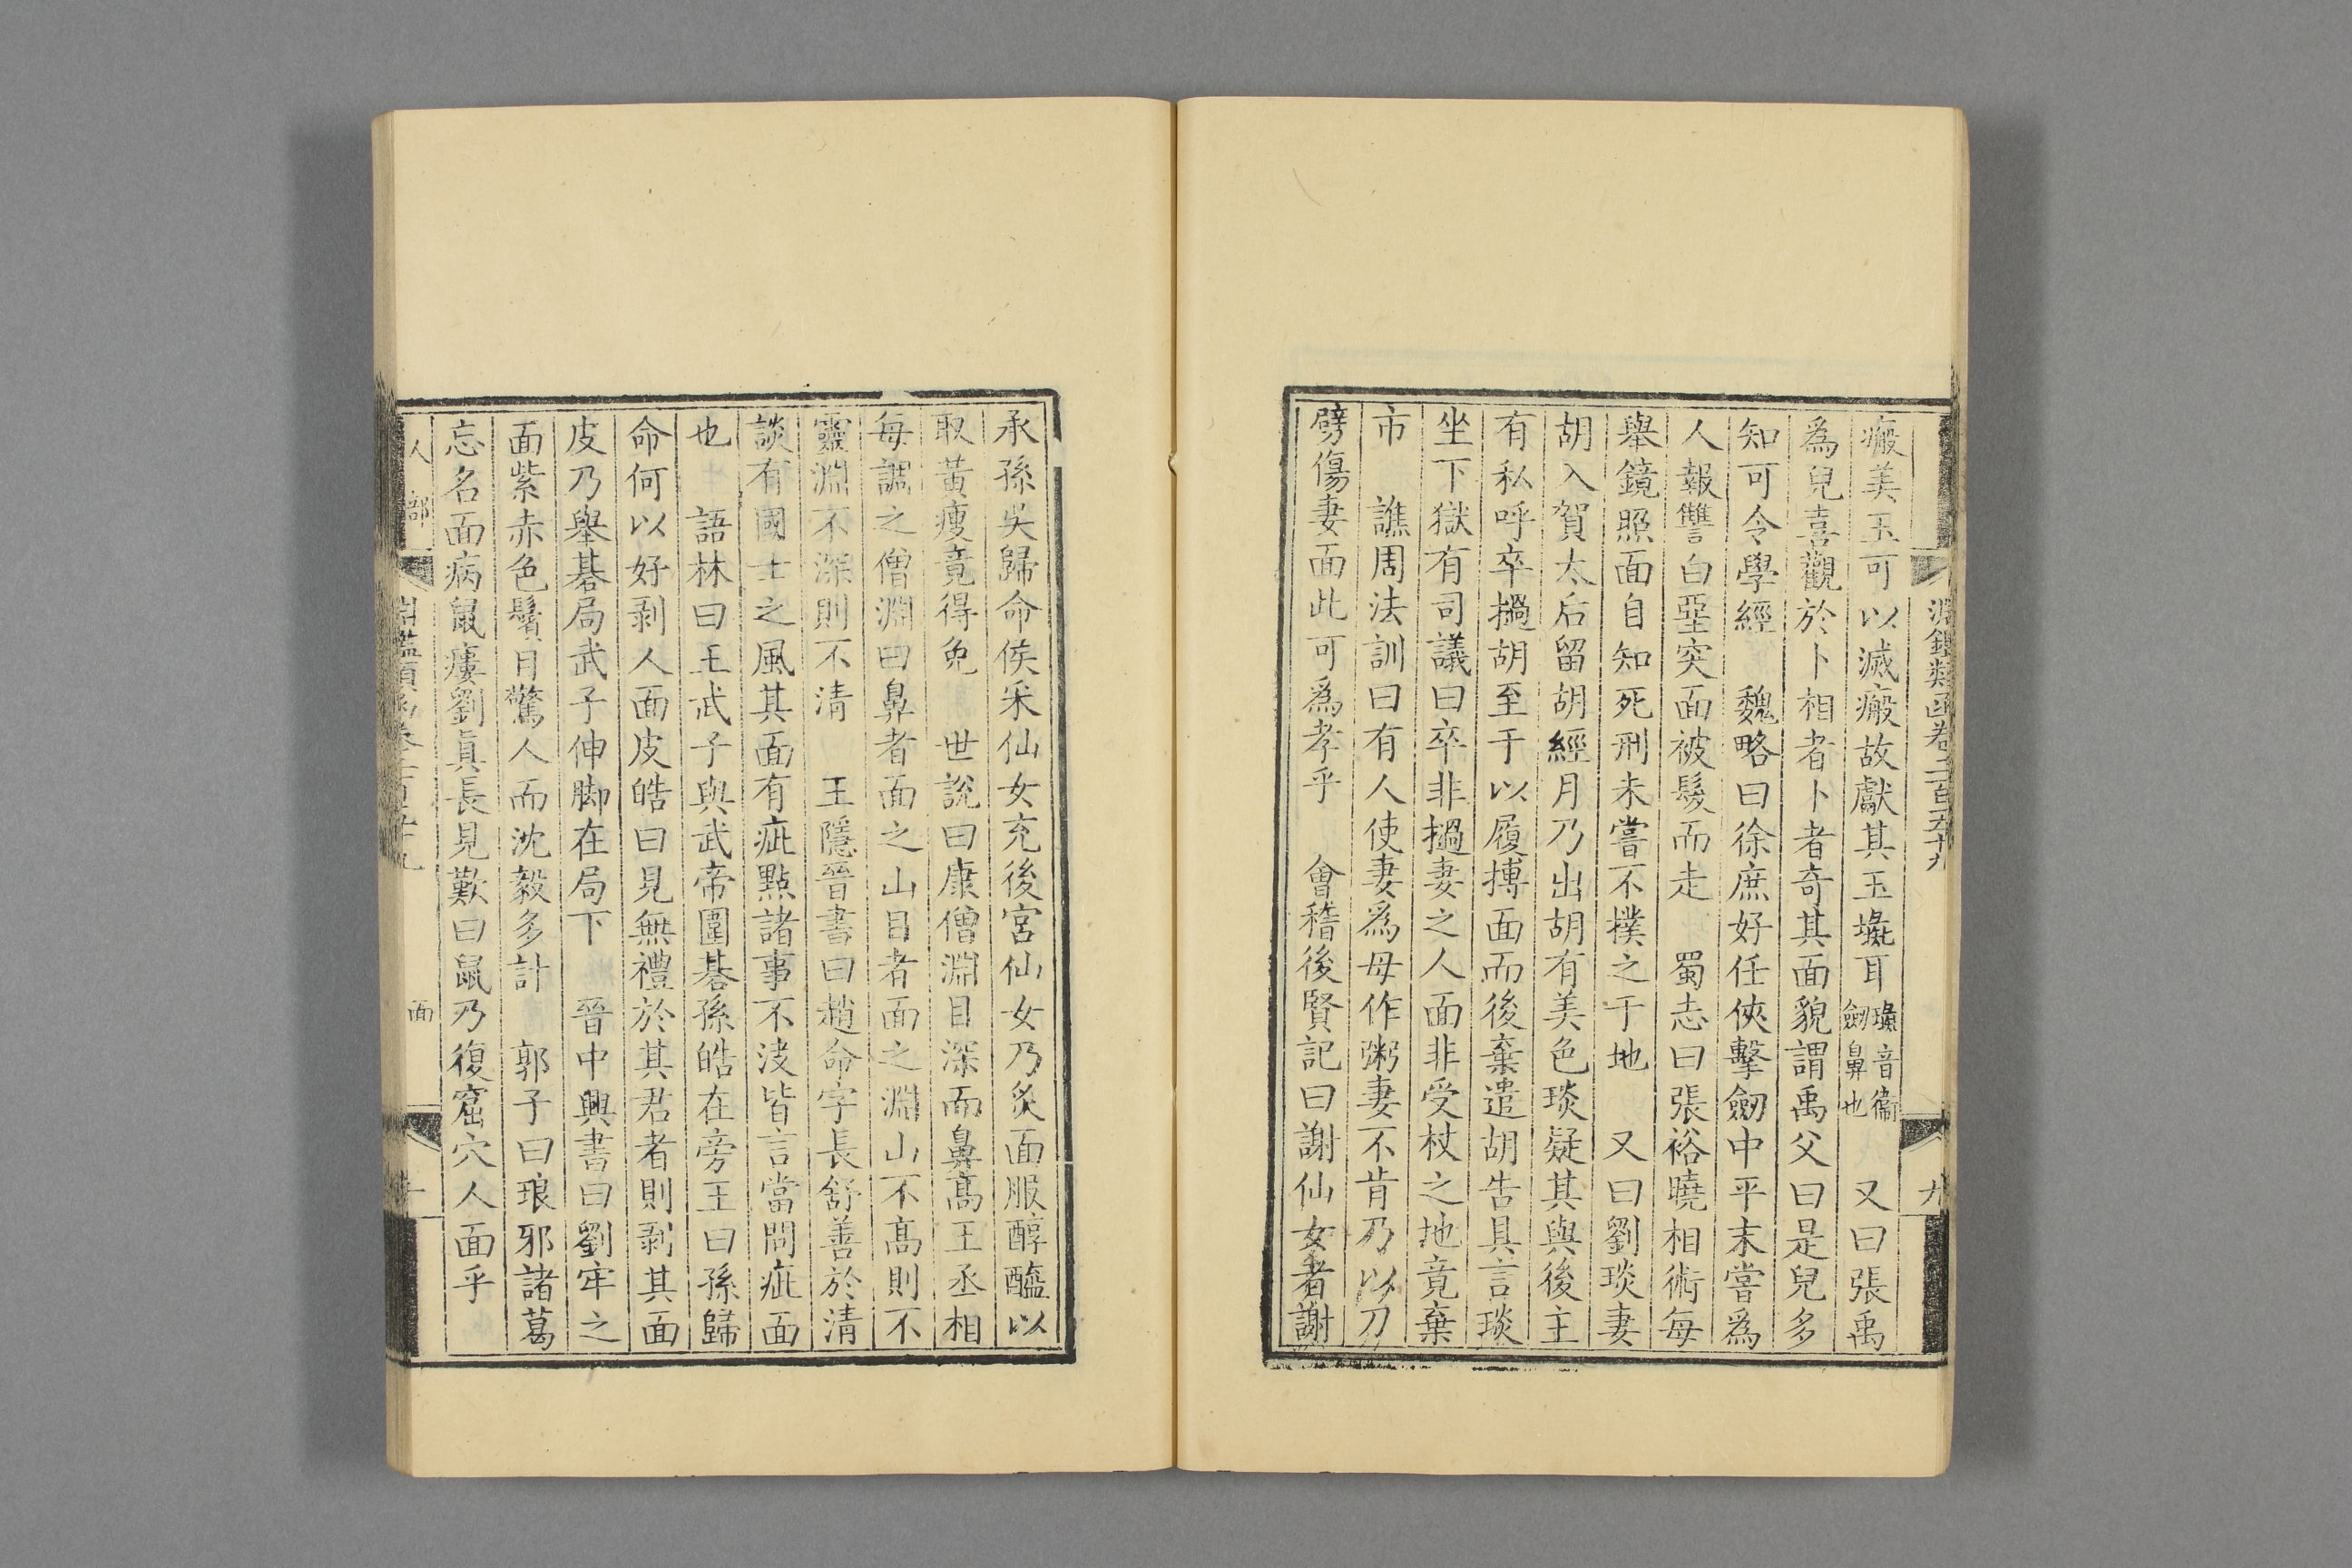 淵鑑類函卷二百五十九
九
瘢美玉可以滅瘢故獻其玉璏耳璏音衞劒鼻也　又曰張禹
為兒喜觀於卜相者卜者奇其面貌謂禹父曰是兒多
知可令學經　魏略曰徐庶好任俠擊劒中平末嘗為
人報讐白堊突面被髮而走　蜀志曰張裕曉相術每
舉鏡照面自知死刑未嘗不撲之于地　又曰劉琰妻
胡入賀太后留胡經月乃出胡有美色琰疑其與後主
有私呼卒撾胡至于以履摶面而後棄遣胡告具言琰
坐下獄有司議曰卒非撾妻之人面非受杖之地竟棄
市　譙周法訓曰有人使妻為母作粥妻不肯乃以刀
劈傷妻面此可為孝乎　會稽後賢記曰謝仙女者謝
承孫吳歸命侯采仙女充後宮仙女乃炙面服醇醯以
取黃瘦竟得免　世說曰康僧淵目深而鼻高王丞相
每調之僧淵曰鼻者面之山目者面之淵山不高則不
靈淵不深則不清　王隱晉書曰趙命字長舒善於清
談有國士之風其面有疵點諸事不決皆言當問疵面
也　語林曰王武子與武帝圍碁孫皓在旁王曰孫歸
命何以好剥人面皮皓曰見無禮於其君者則剥其面
皮乃舉碁局武子伸脚在局下　晉中興書曰劉牢之
面紫赤色鬚目驚人而沈毅多計　郭子曰琅邪諸葛
忘名面病鼠瘻劉真長見歎曰鼠乃復窟穴人面乎
人部
面